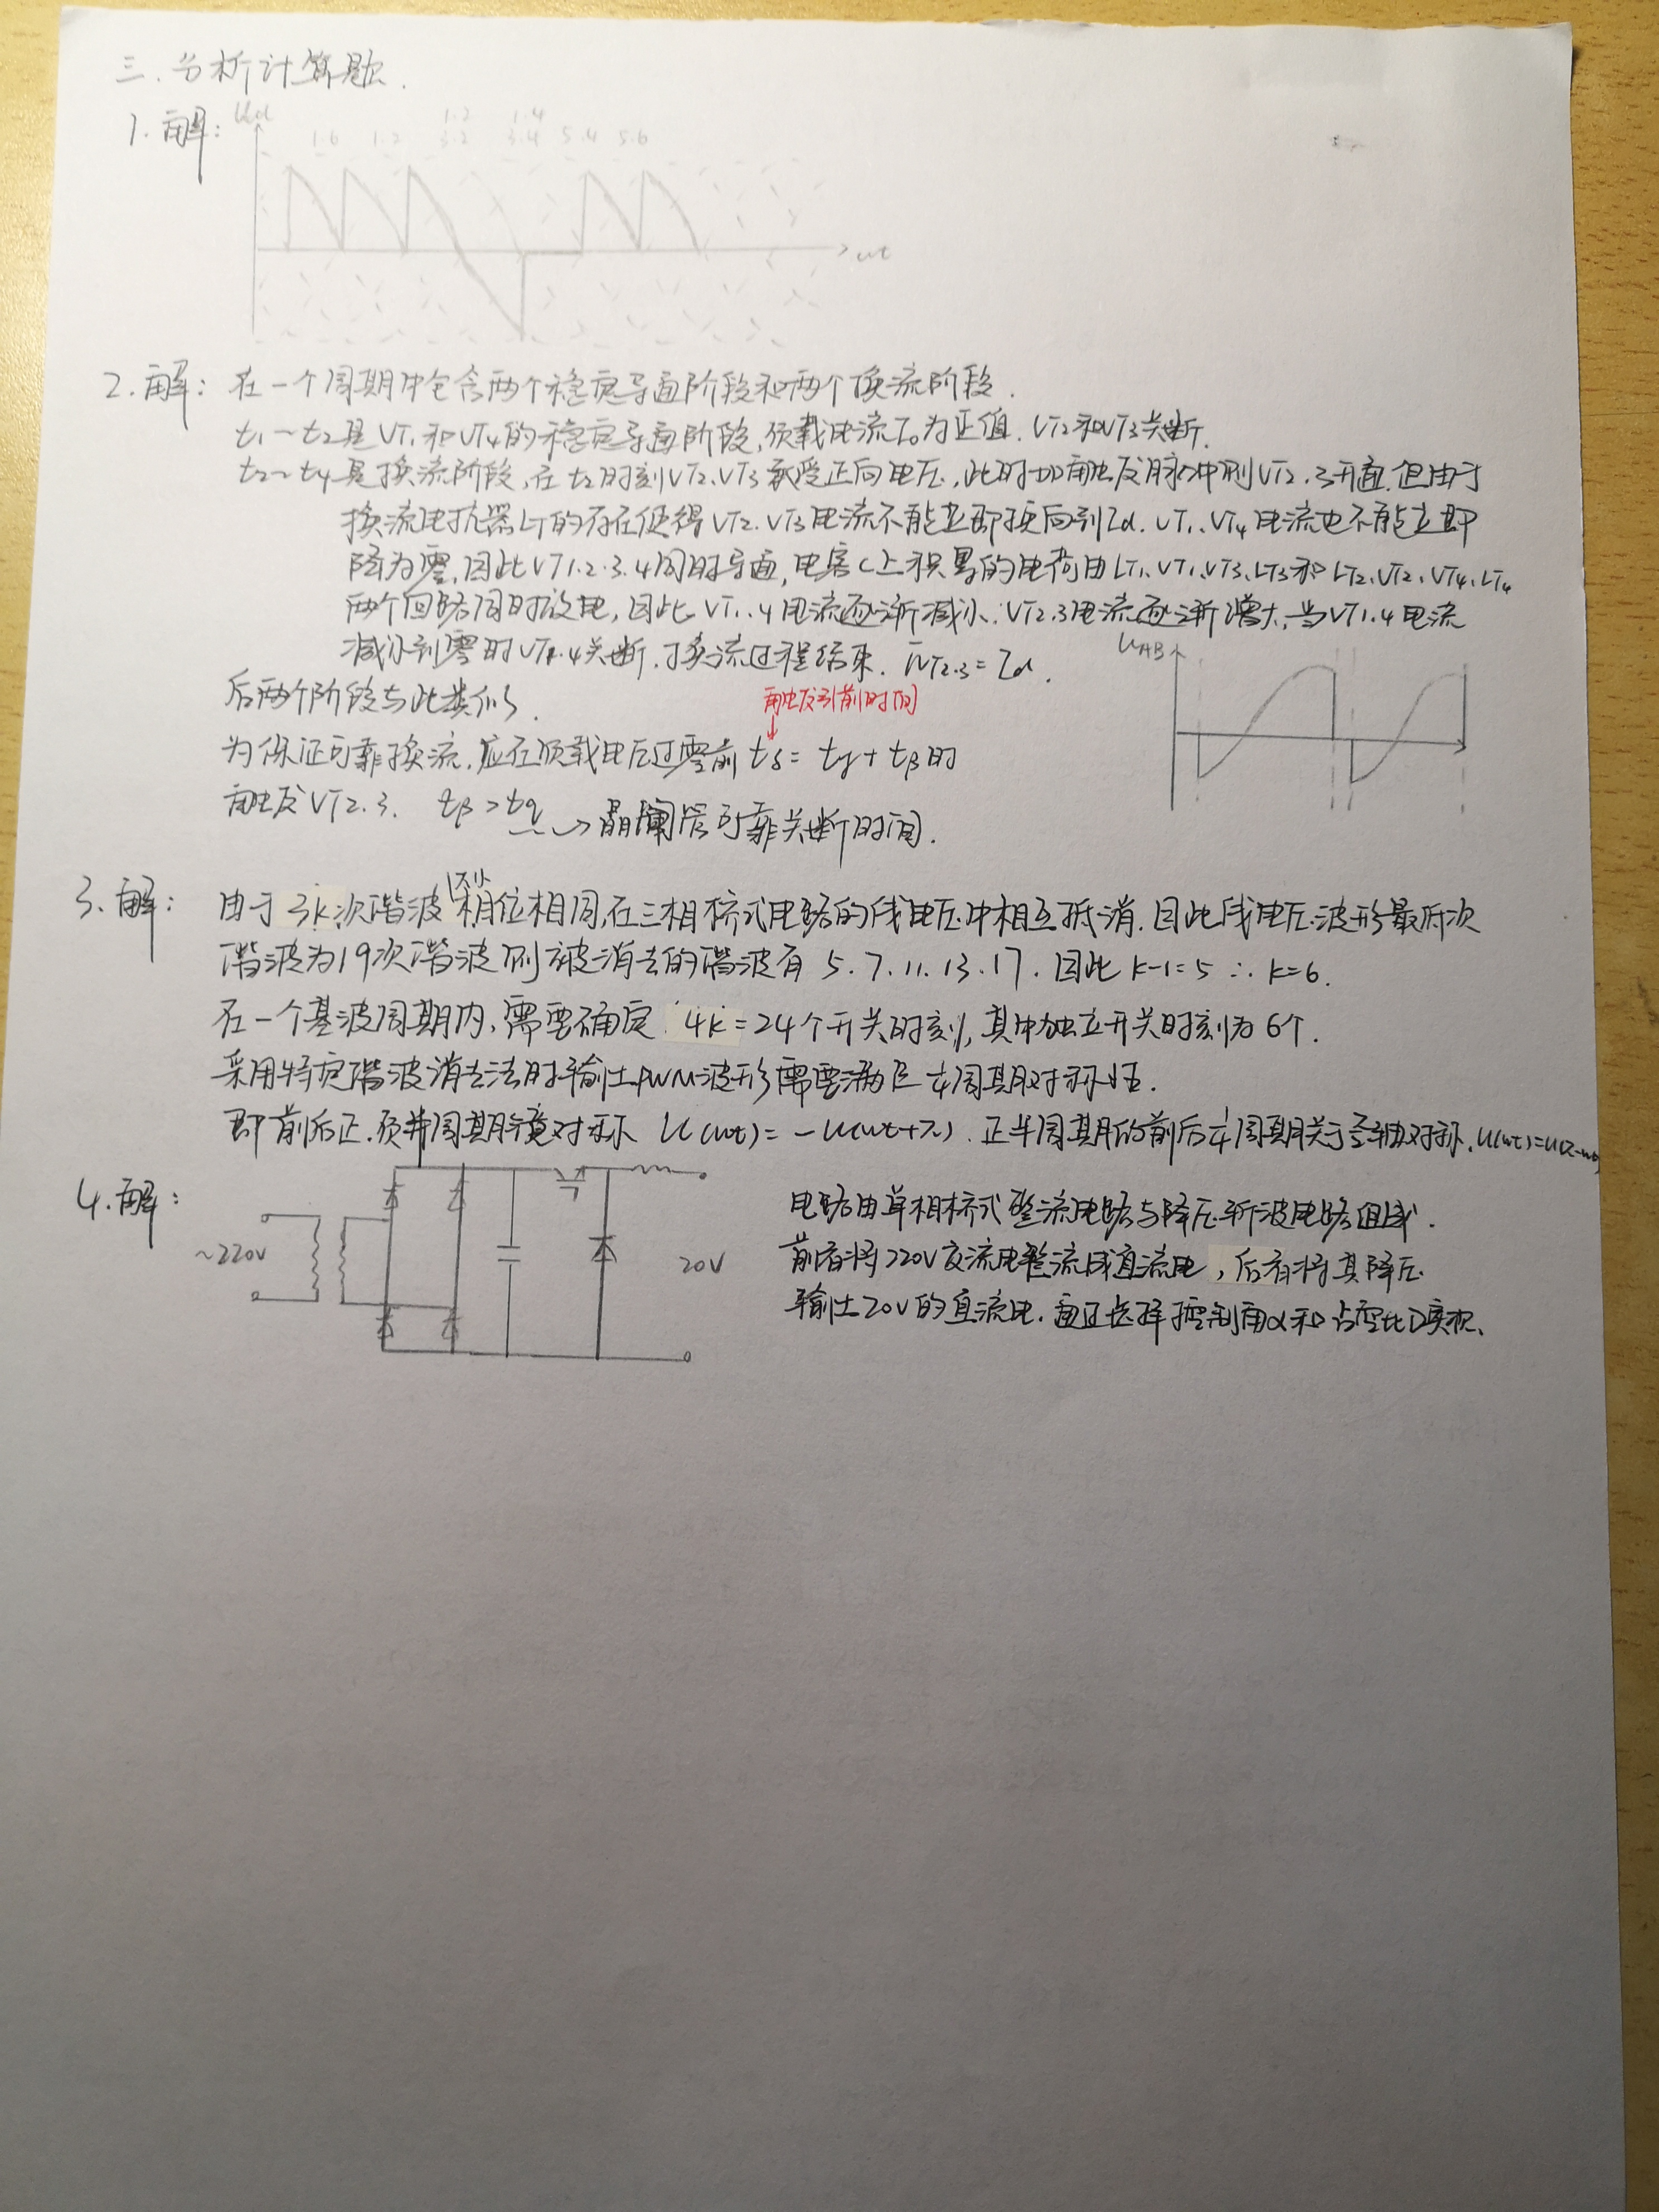 三.分析计算题.
1.解: Ud
1.2 1.4
1.6 1.2 3.2 3.4 5.4 5.6
ωt
2.解: 在一个周期中包含两个稳定导通阶段和两个换流阶段.
t₁~t₂是VT₁和VT₄的稳定导通阶段,负载电流I₀为正值.VT2和VT3关断.
t₂~t₄是换流阶段,在t₂时刻VT2、VT3承受正向电压,此时加触发脉冲则VT2.3开通.但由于
换流电抗器LT的存在使得VT2.VT3电流不能立即换向到Id.VT₁、VT₄电流也不能立即
降为零,因此VT1.2.3.4同时导通,电容C上积累的电荷由LT₁、VT₁、VT3、LT3和LT2、VT2、VT4、LT4
两个回路同时放电,因此VT1.4电流逐渐减小.VT2.3电流逐渐增大,当VT1.4电流
减小到零时VT1.4关断.换流过程结束. iVT2.3=Id.
uAB
后两个阶段与此类似.
触发引前时间
为保证可靠换流.应在负载电压过零前 tδ=tγ+tβ时
触发VT2.3. tβ>tq
晶闸管可靠关断时间.
3、解: 由于3k次谐波相位相同,在三相桥式电路的线电压中相互抵消.因此线电压波形最低次
谐波为19次谐波则被消去的谐波有5.7.11.13.17.因此k-1=5 ∴k=6.
在一个基波周期内,需要确定4k=24个开关时刻,其中独立开关时刻为6个.
采用特定谐波消去法时输出PWM波形需要满足¼周期对称性.
即前后正.负半周期镜对称 u(ωt)=-u(ωt+π).正半周期的前后¼周期关于垂轴对称.u(ωt)=u(π-ωt)
4.解:
~220V
20V
电路由单相桥式整流电路与降压斩波电路组成.
前者将220V交流电整流成直流电,后者将其降压
输出20V的直流电.通过选择控制角α和占空比D实现.